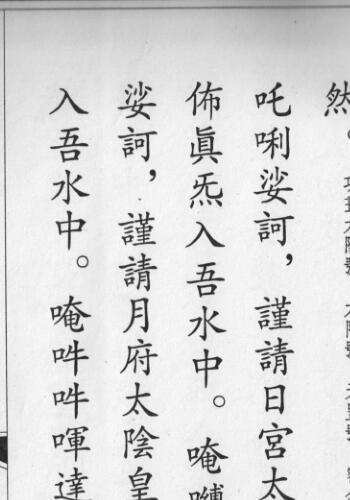 然。
吒唎娑訶，謹請日宮太
佈眞炁入吾水中。唵
娑訶，謹請月府太陰皇
入吾水中。唵吽吽喗達